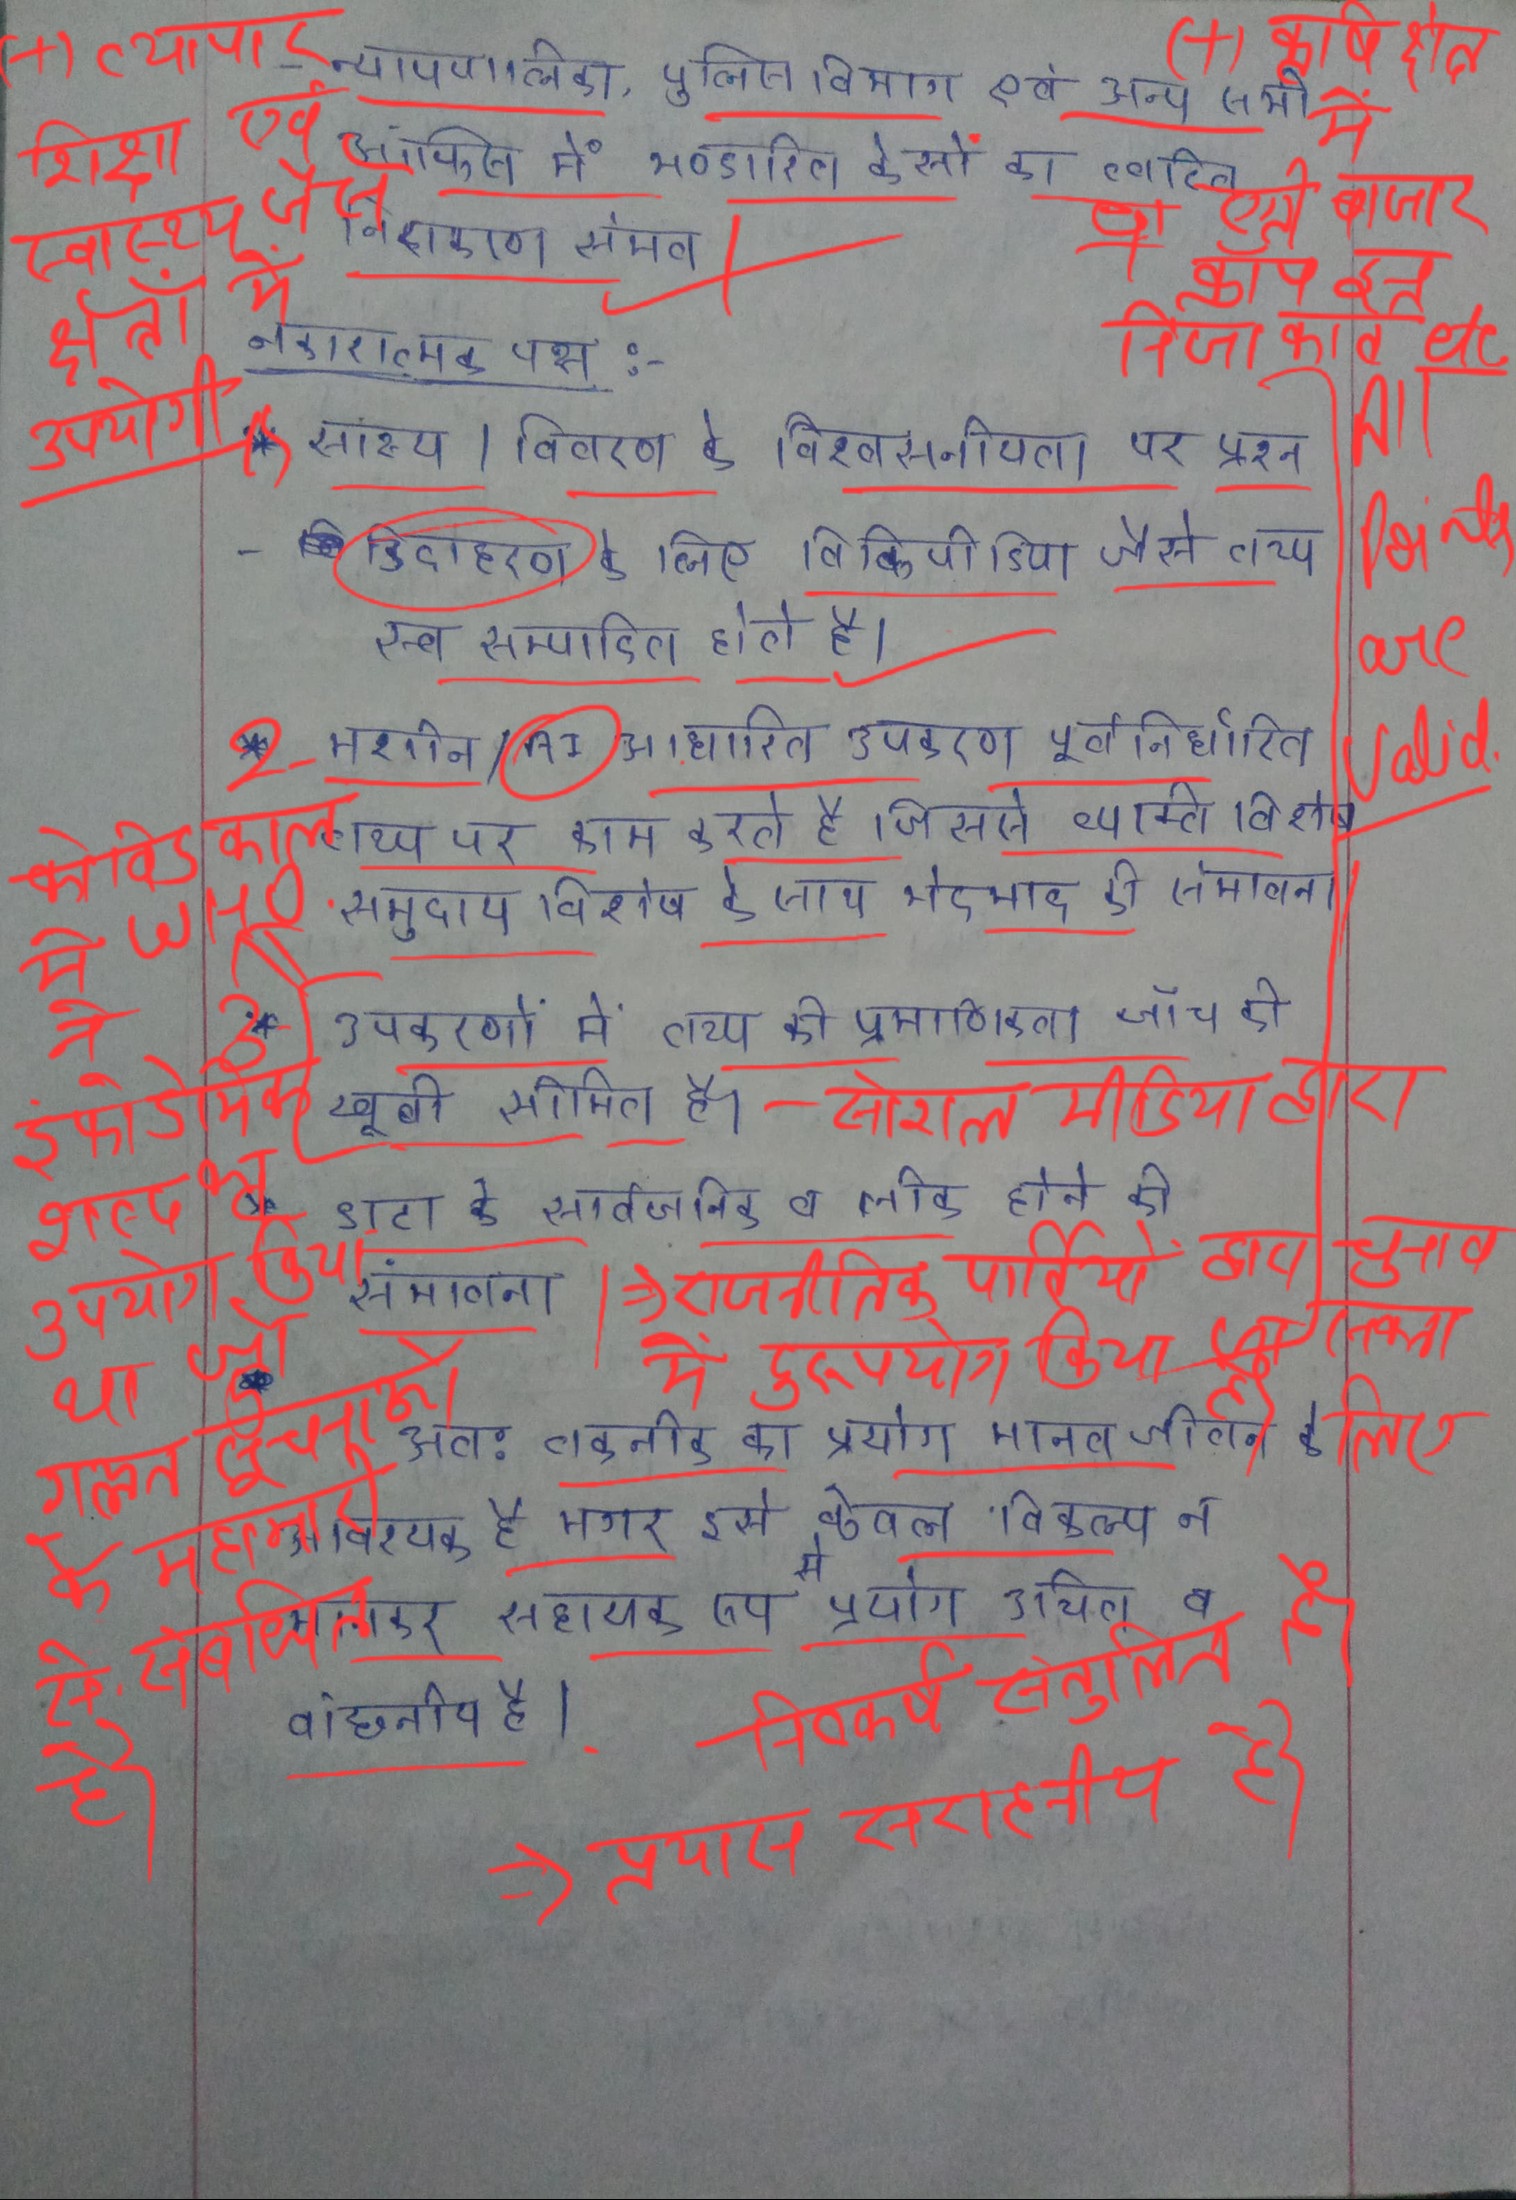 (+) व्यापार
शिक्षा एवं
स्वास्थ्य जैसे
क्षेत्रों में
उपयोगी
(+) कृषि क्षेत्र
में
एग्री बाजार
क्रॉप इन
निंजा कार्ट etc
All
points
are
valid.
- न्यायपालिका, पुलिस विभाग एवं अन्य सभी
ऑफिस में भण्डारित केसों का त्वरित
निराकरण संभव
नकारात्मक पक्ष :-
* साक्ष्य / विवरण के विश्वसनीयता पर प्रश्न
- उदाहरण के लिए विकिपीडिया जैसे तथ्य
स्व सम्पादित होते है।
2- मशीन / AI आधारित उपकरण पूर्व निर्धारित
तथ्य पर काम करते है जिससे व्यक्ति विशेष
समुदाय विशेष के साथ भेदभाव की संभावना
3- उपकरणों में तथ्य की प्रमाणिकता जॉच की
खूबी सीमित है। - सोशल मीडिया द्वारा
* डाटा के सार्वजनिक व लीक होने की
संभावना | ⇒ राजनीतिक पार्टियों द्वारा चुनाव
में दुरूपयोग किया जा सकता
है
कोविड काल
में WHO
ने
इंफोडेमिक
शब्द का
उपयोग किया
था जो
गलत सूचनाओं
के महामारी
से संबंधित
है।
अतः तकनीक का प्रयोग मानव जीवन के लिए
आवश्यक है मगर इसे केवल विकल्प न
मानकर सहायक रूप से प्रयोग उचित व
वांछनीय है।
- निष्कर्ष संतुलित है।
⇒ प्रयास सराहनीय है।